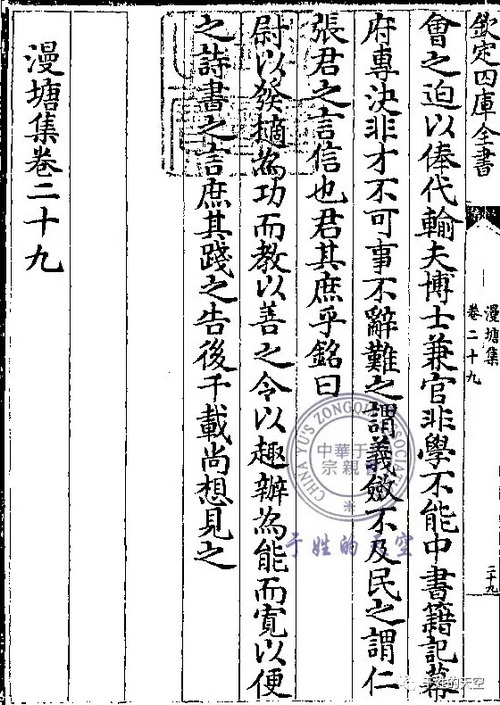 欽定四庫全書
漫塘集
卷二十九
二十九
會之迫以俸代輸夫博士兼官非學不能中書籍記幕
府專決非才不可事不辭難之謂義斂不及民之謂仁
張君之言信也君其庶乎銘曰
尉以發擿為功而教以善之令以趣辦為能而寬以便
之詩書之言庶其踐之告後千載尚想見之
漫塘集卷二十九
CHINA YU'S ZONGQIN ASSOCIATION
中華于
宗親會
于姓的天空
于姓的天空